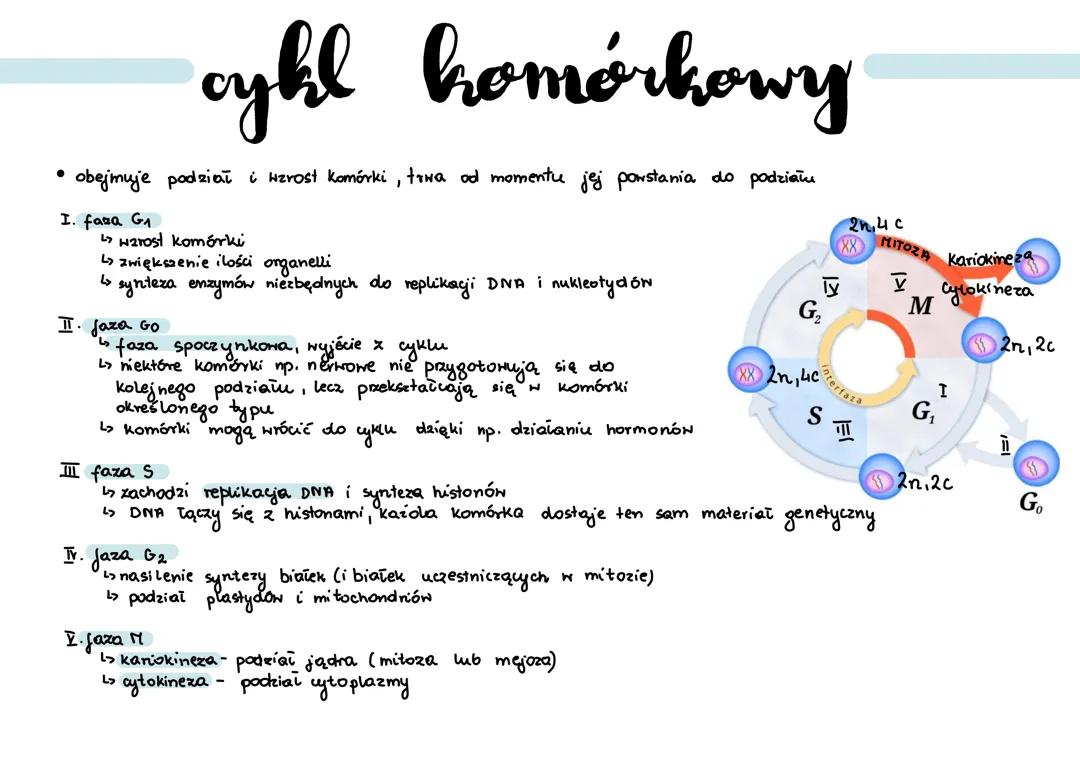 cykl komórkowy
• obejmuje podział i wzrost komórki, trwa od momentu jej powstania do podziału
I. faza G1
↳ wzrost komórki
↳ zwiększenie ilości organelli
↳ synteza enzymów niezbędnych do replikacji DNA i nukleotydów
II. faza G0
↳ faza spoczynkowa, wyjście z cyklu
↳ niektóre komórki np. nerwowe nie przygotowują się do
kolejnego podziału, lecz przekształcają się w komórki
określonego typu
↳ komórki mogą wrócić do cyklu dzięki np. działaniu hormonów
III faza S
↳ zachodzi replikacja DNA i synteza histonów
↳ DNA łączy się z histonami, każda komórka dostaje ten sam materiał genetyczny
IV. faza G2
↳ nasilenie syntezy białek (i białek uczestniczących w mitozie)
↳ podział plastydów i mitochondriów
V. faza M
↳ kariokineza - podział jądra (mitoza lub mejoza)
↳ cytokineza - podział cytoplazmy
2n, 4c
MITOZA
Kariokineza
Cytokineza
IV
G2
V
M
2n, 2c
2n, 4c
interfaza
I
G1
S
III
II
2n, 2c
G0